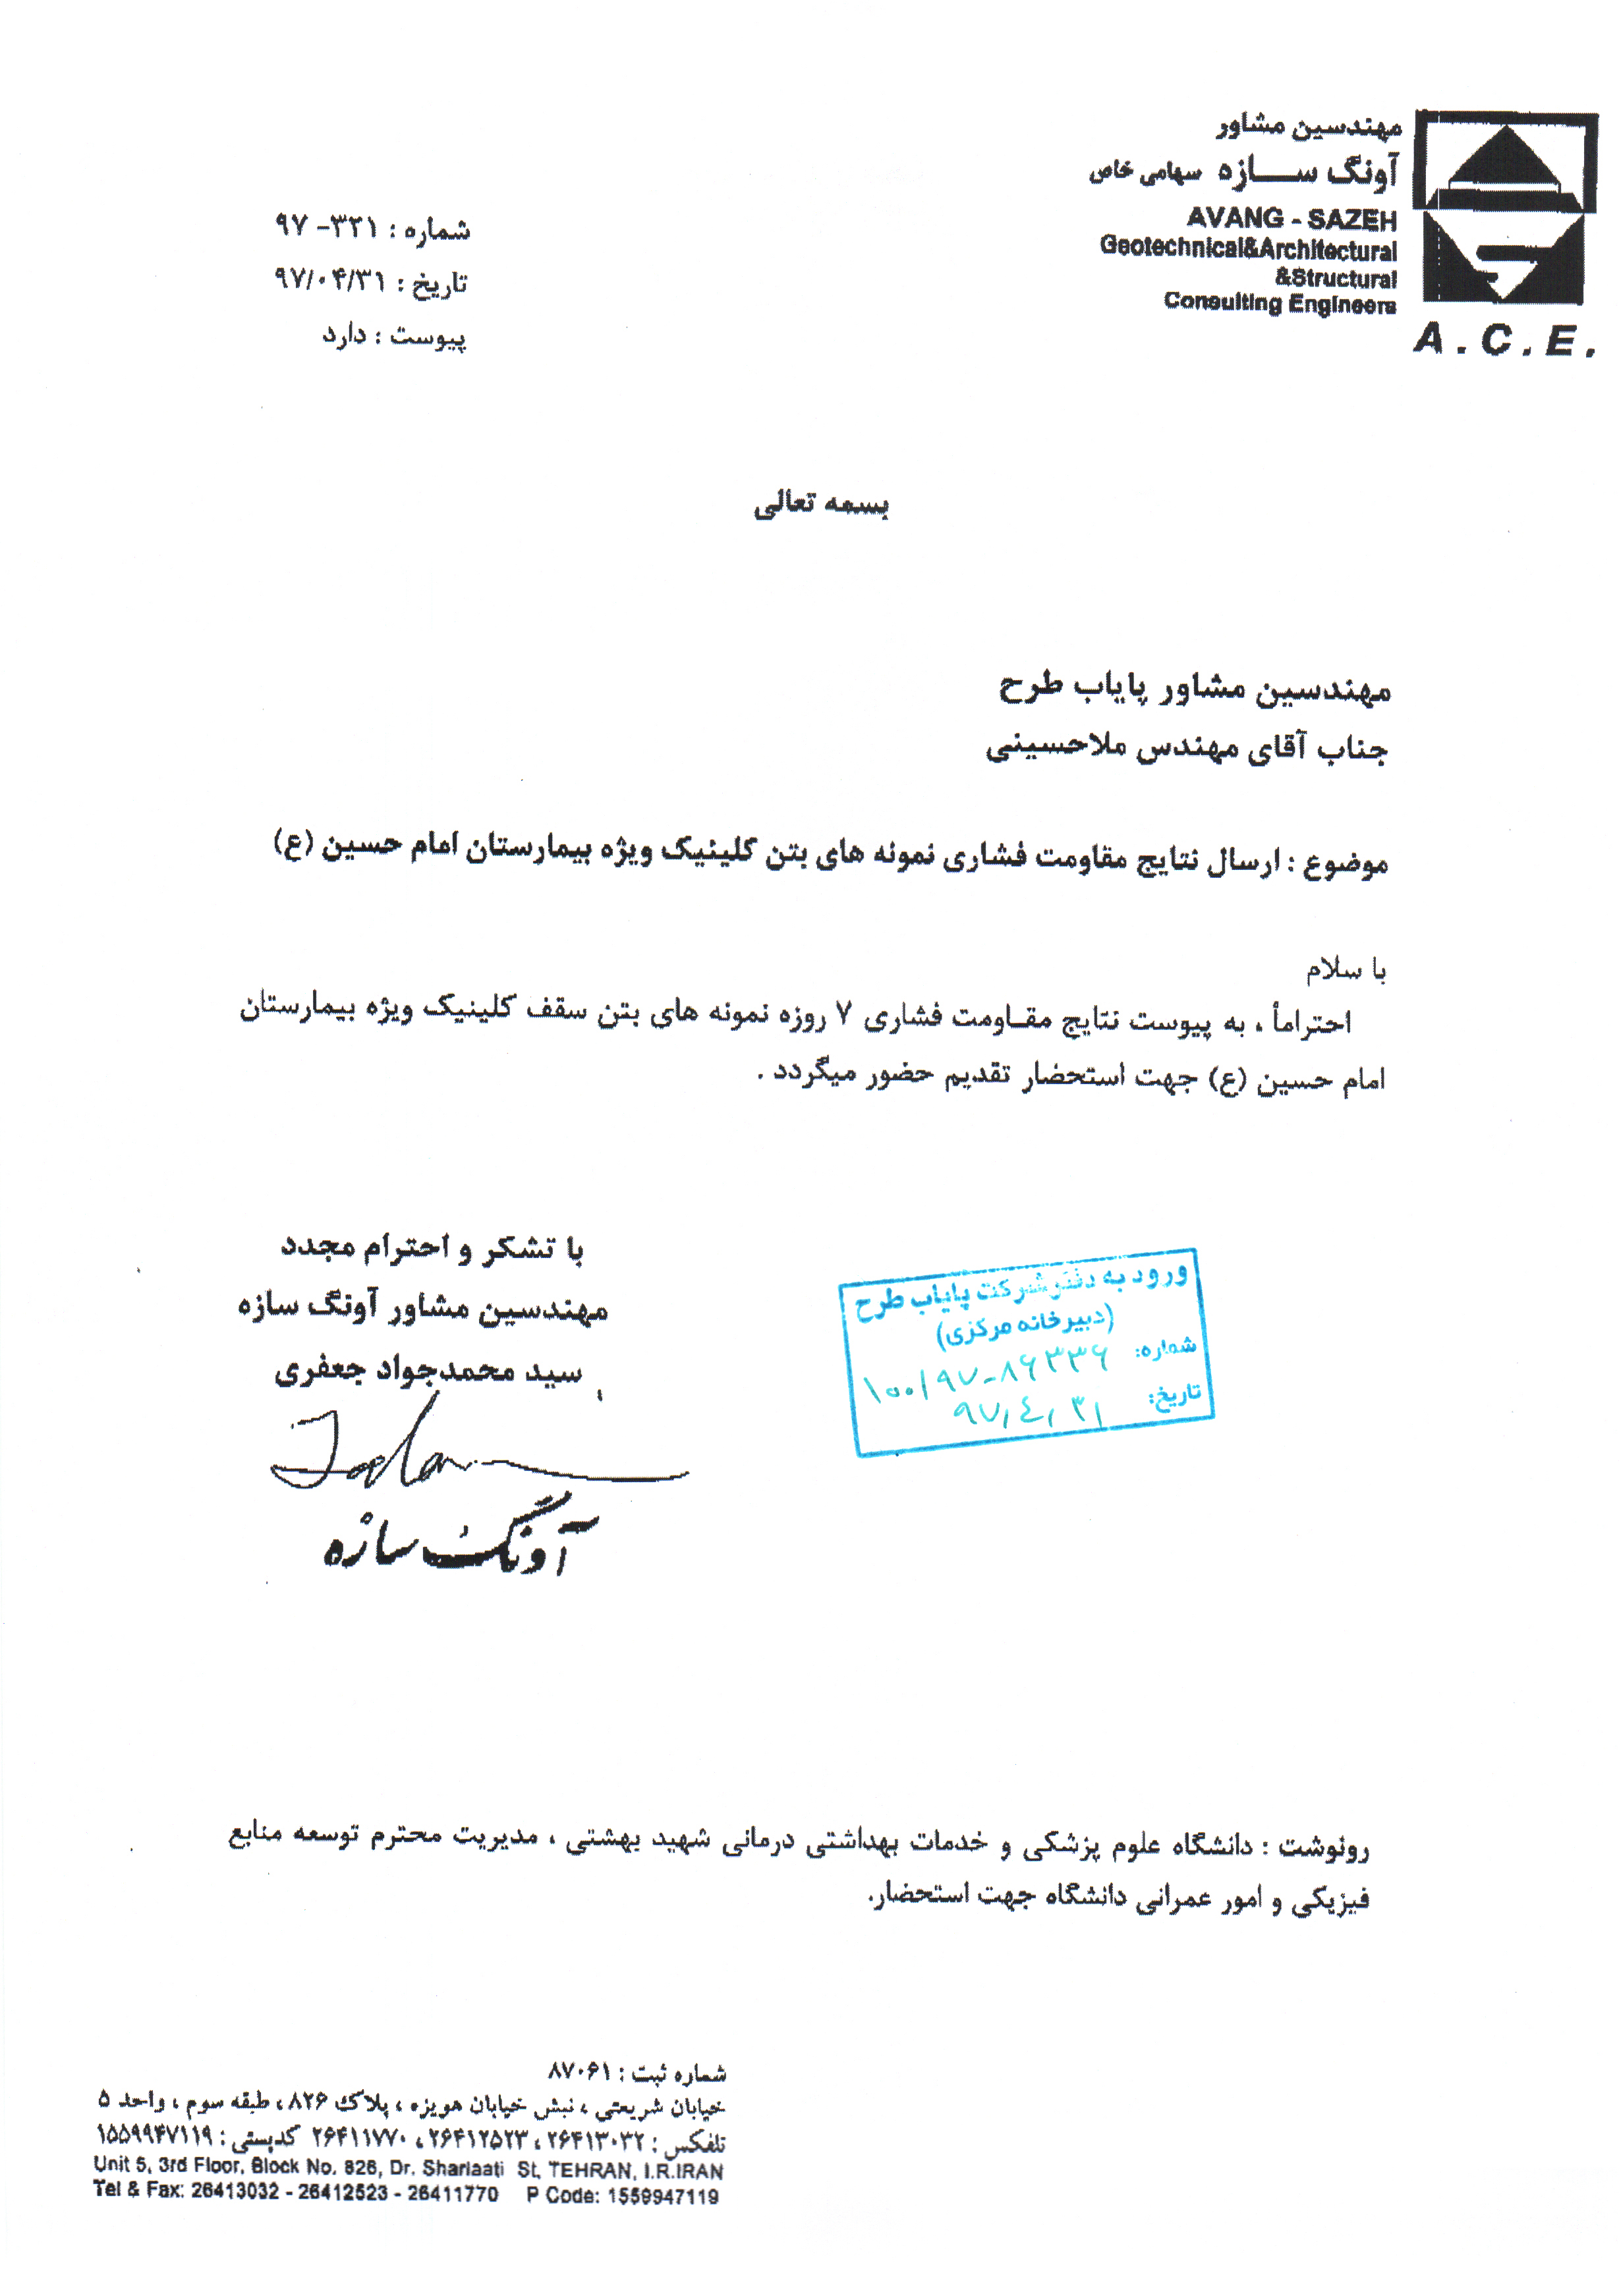 مهندسین مشاور
آونگ ســـازه سهامی خاص
AVANG - SAZEH
Geotechnical&Architectural
&Structural
Consulting Engineers
A.C.E.
شماره : ۳۲۱- ۹۷
تاریخ : ۹۷/۰۴/۳۱
پیوست : دارد
بسمه تعالی
مهندسین مشاور پایاب طرح
جناب آقای مهندس ملاحسینی
موضوع : ارسال نتایج مقاومت فشاری نمونه های بتن کلینیک ویژه بیمارستان امام حسین (ع)
با سلام
احتراماً ، به پیوست نتایج مقـاومت فشاری ۷ روزه نمونه های بتن سقف کلینیک ویژه بیمارستان
امام حسین (ع) جهت استحضار تقدیم حضور میگردد .
با تشکر و احترام مجدد
مهندسین مشاور آونگ سازه
سید محمدجواد جعفری
آونگ سازه
ورود به دفتر شرکت پایاب طرح
(دبیرخانه مرکزی)
شماره: ۱۰۰/۹۷-۸۶۳۳۶
تاریخ: ۹۷/۴/۳۱
رونوشت : دانشگاه علوم پزشکی و خدمات بهداشتی درمانی شهید بهشتی ، مدیریت محترم توسعه منابع
فیزیکی و امور عمرانی دانشگاه جهت استحضار.
شماره ثبت : ۸۷۰۶۱
خیابان شریعتی ، نبش خیابان هویزه ، پلاک ۸۲۶ ، طبقه سوم ، واحد ۵
تلفکس : ۲۶۴۱۳۰۳۲ ، ۲۶۴۱۲۵۲۳ ، ۲۶۴۱۱۷۷۰ کدپستی : ۱۵۵۹۹۴۷۱۱۹
Unit 5, 3rd Floor, Block No. 826, Dr. Shariaati St, TEHRAN, I.R.IRAN
Tel & Fax: 26413032 - 26412523 - 26411770 P Code: 1559947119